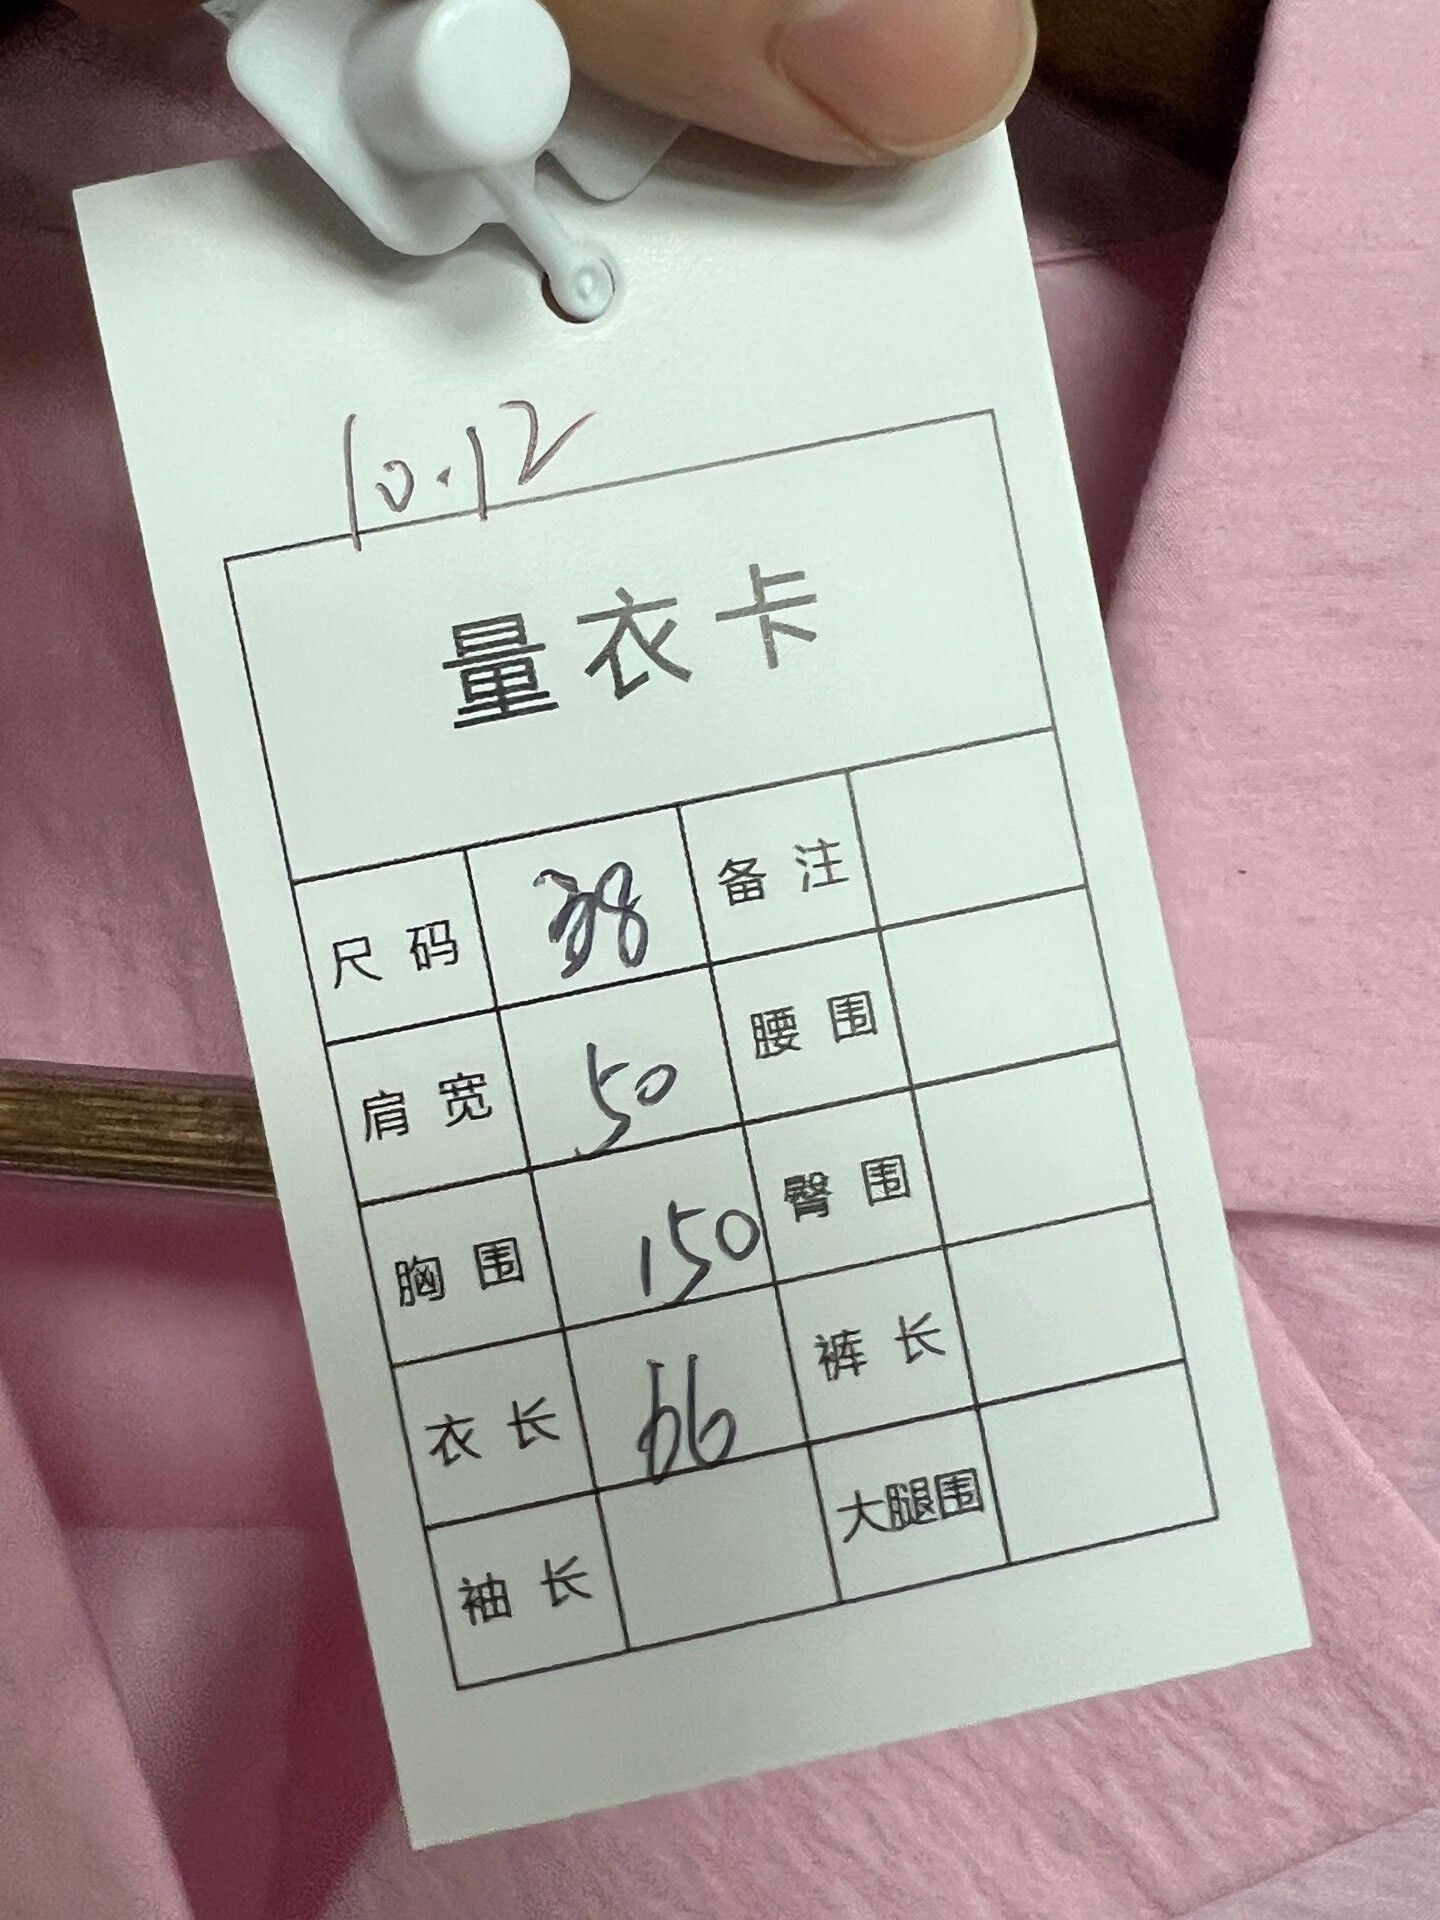 10.12
量衣卡
尺码 38 备注
肩宽 50 腰围
胸围 150 臀围
衣长 66 裤长
袖长 大腿围